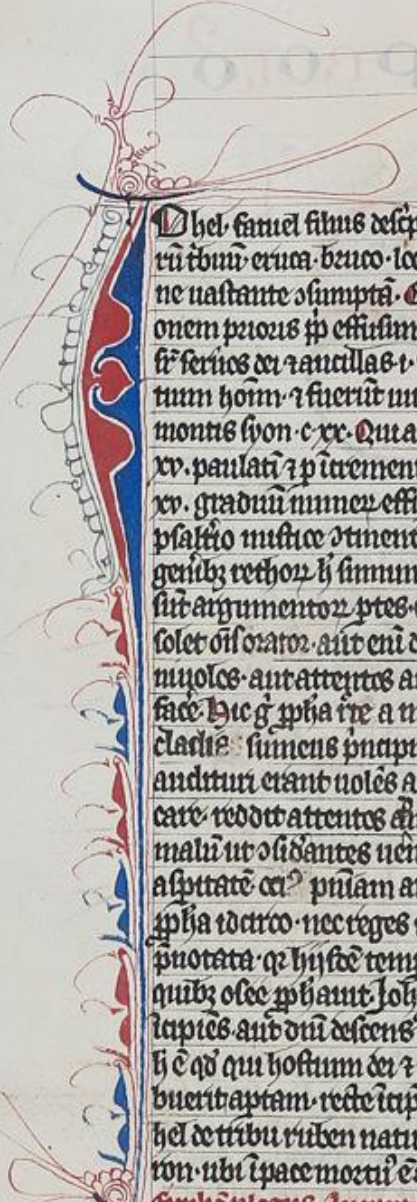 PROLO
Ohel. fatuel filius descp
rũ tbuũ eruca. bruco. loc
ne uastante ɔsumpta.
onem prioris pp effusim
sr̃ seruos dei ⁊ ancillas. i.
tum hoĩm. ⁊ fuerũt un
montis syon. c xx. Quia
xv. paulatĩ ⁊ p ĩcremen
xv. graduũ numeꝝ effi
psaltio mistice ɔtinent
genibꝫ rethoꝝ h̃ simium
sũt argumentoꝝ ptes.
solet oĩs orator. aut eni c
niuolos. aut attentos a
facẽ. hic g̃ ppha
sumens pncipi
audituri erant uolẽs a
care. reddit attentos
malũ ut ɔsidãntes uen
aspitatẽ pniam a
ppha idcirco. nec reges
pnotata. qr hijsdẽ tem
quibꝫ osee pphauit. Joh
ĩcipiẽs. aut dnĩ descens
h̃ ẽ qd̃ qui hostium dei ⁊
buerit aptam. recte ĩcip
hel de tribu ruben nat
ron. ubi ĩ pace mortu᾽ ẽ